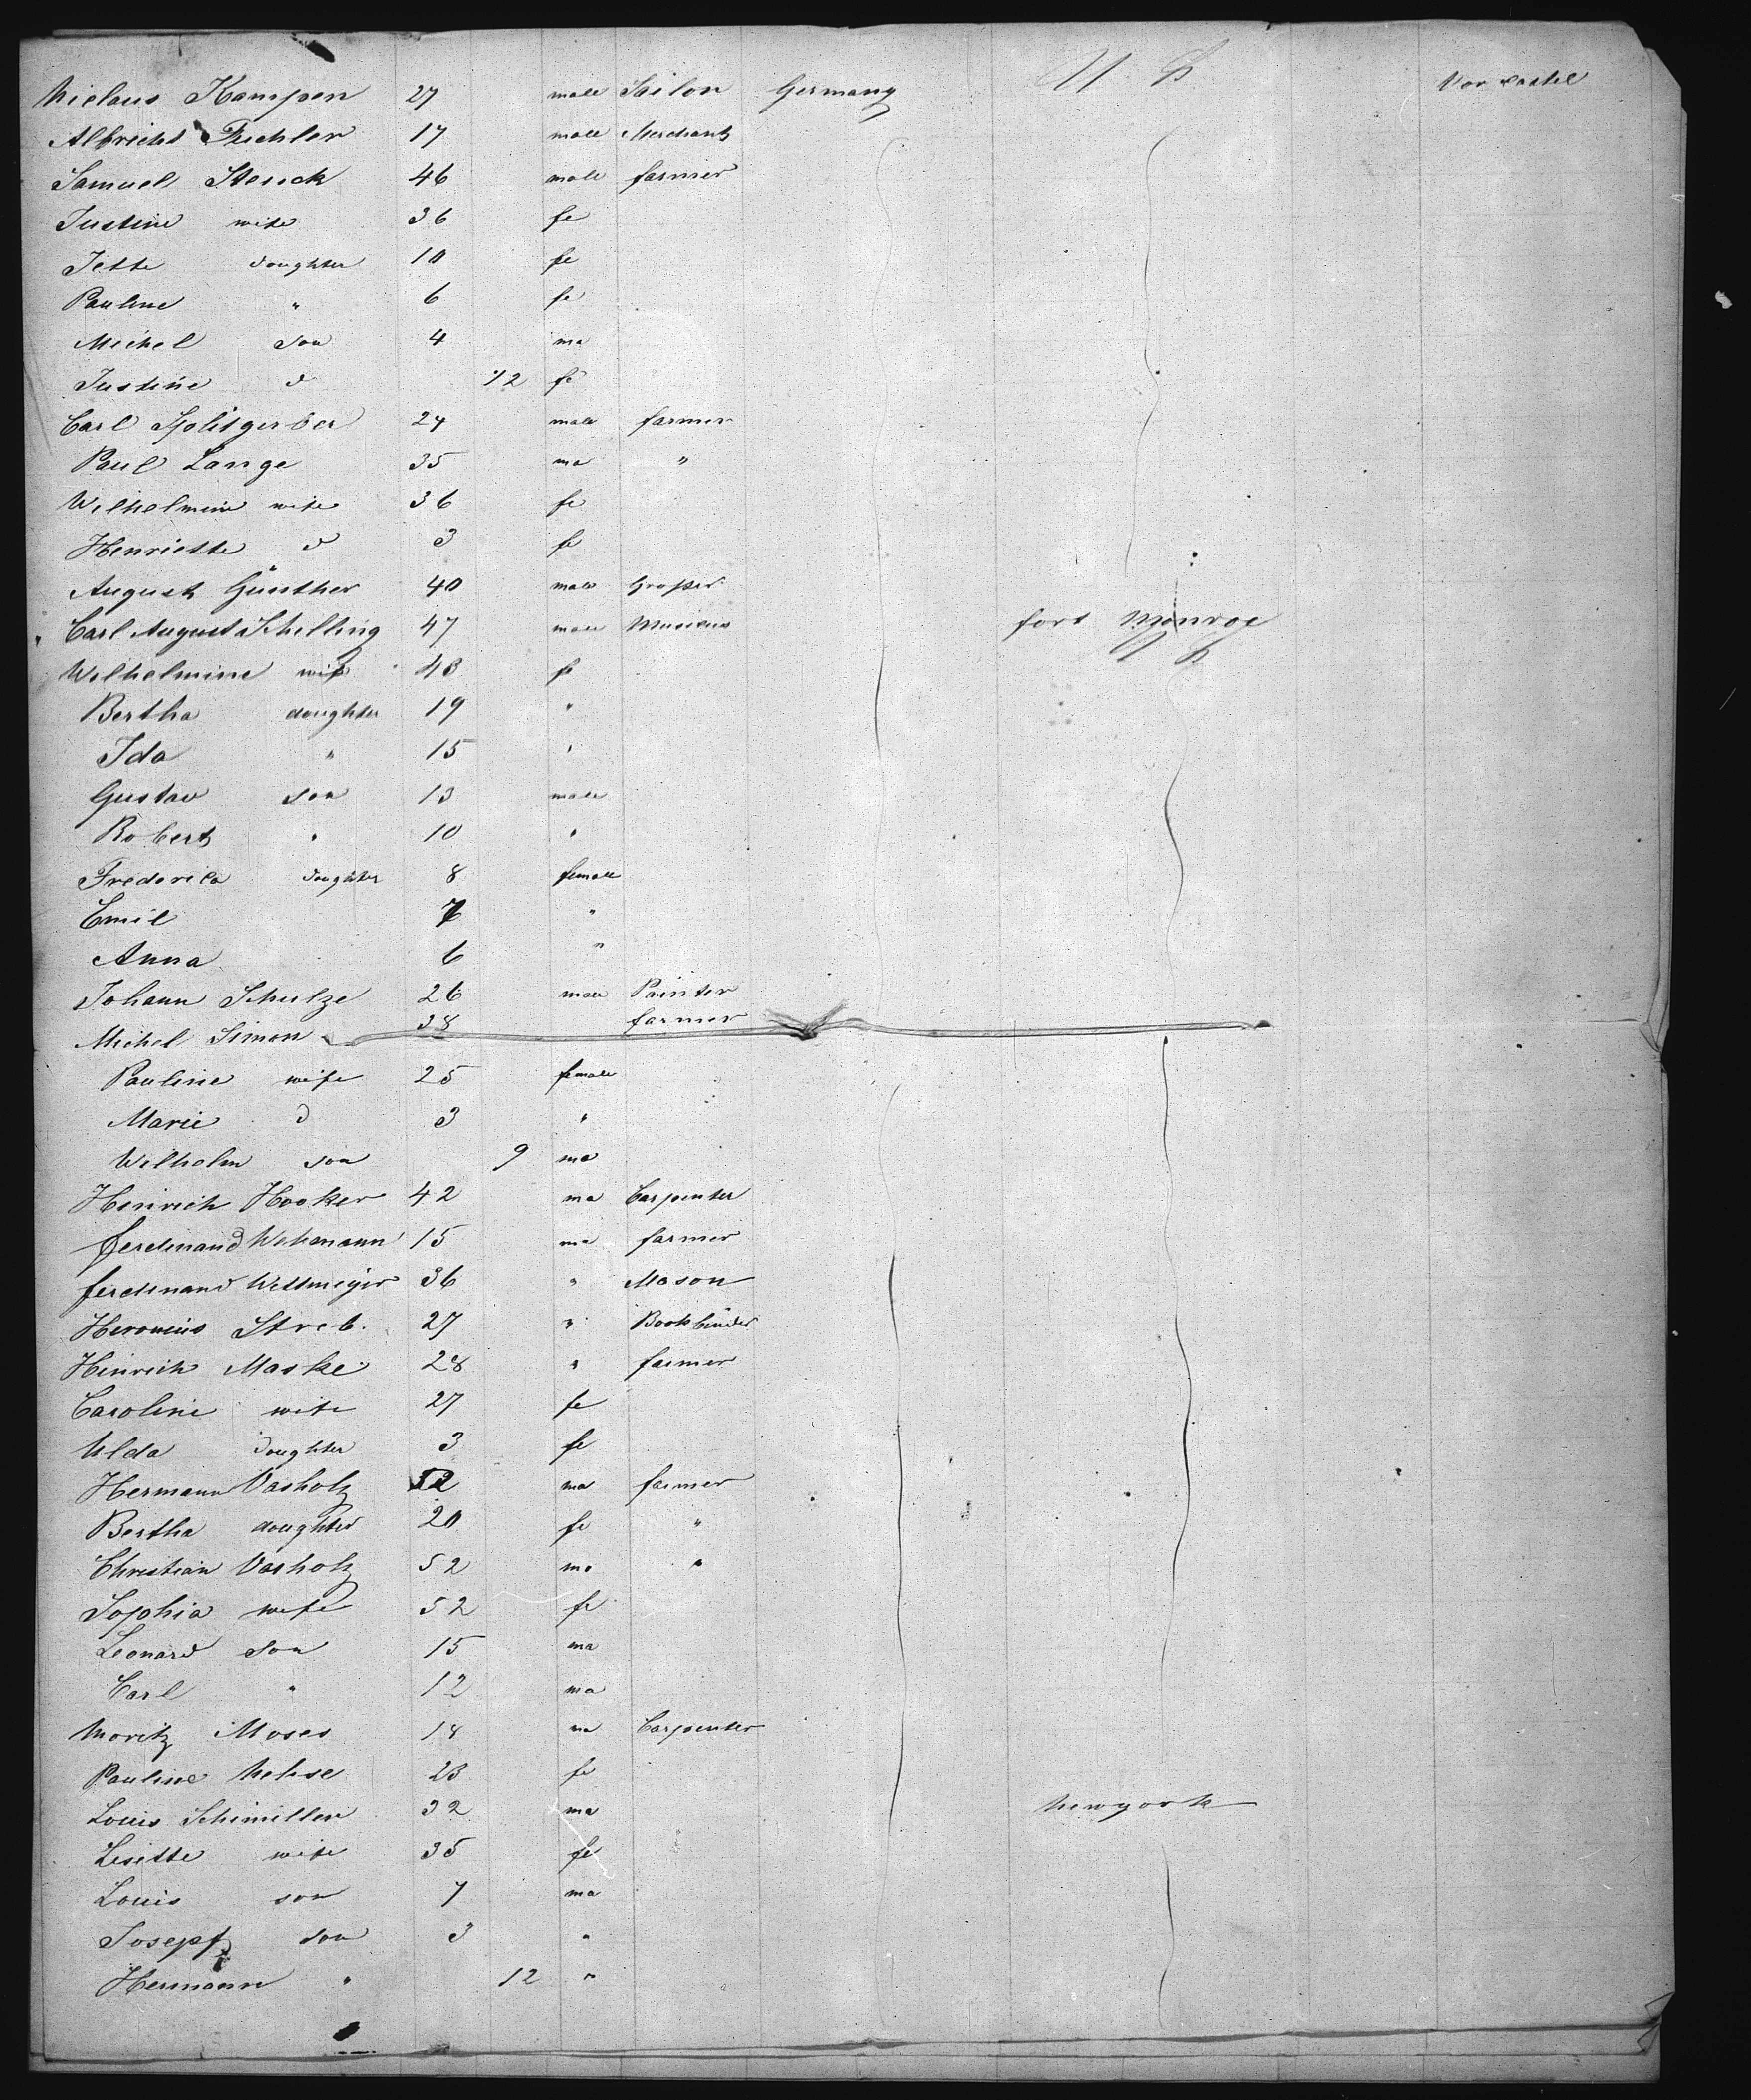 Niclaus Kampen 27 male Sailor Germany U S Vor castel
Albricht Fischler 17 male Merchant
Samuel Stenck 46 male farmer
Justine wife 36 fe
Jette daughter 10 fe
Pauline " 6 fe
Michel Son 4 ma
Justine d 12 fe
Carl Splitgerber 24 male farmer
Paul Lange 35 ma "
Wilhelmine wife 36 fe
Henriette d 3 fe
August Günther 40 male
Carl August Schelling 47 male Musicus fort Monroe
Wilhelmine wife 48 fe U S
Bertha daughter 19 "
Ida " 15 "
Gustav son 13 male
Robert " 10 "
Frederica daughter 8 female
Emil 7 "
Anna 6 "
Johann Schulze 26 male Painter
Michel Simon 38 farmer
Pauline wife 25 female
Marie d 3 "
Wilhelm son 9 ma
Heinrich Hooker 42 ma Carpenter
ferdinand Wehmann 15 ma farmer
ferdinand Weltmeyer 36 " Mason
Heronius Streb. 27 " Bookbinder
Hinrich Maske 28 " farmer
Caroline wife 27 fe
Ulda daughter 3 fe
Hermann Vasholz 52 ma farmer
Bertha doughter 20 fe "
Christian Vasholz 52 ma "
Sophia wife 52 fe
Leonard son 15 ma
Carl " 12 ma
Moritz Moses 18 ma Carpenter
Pauline Mehse 23 fe
Louis Schimiller 32 ma Newyork
Lisette wife 35 fe
Louis son 7 ma
Josepf son 3 "
Hermann " 12 "